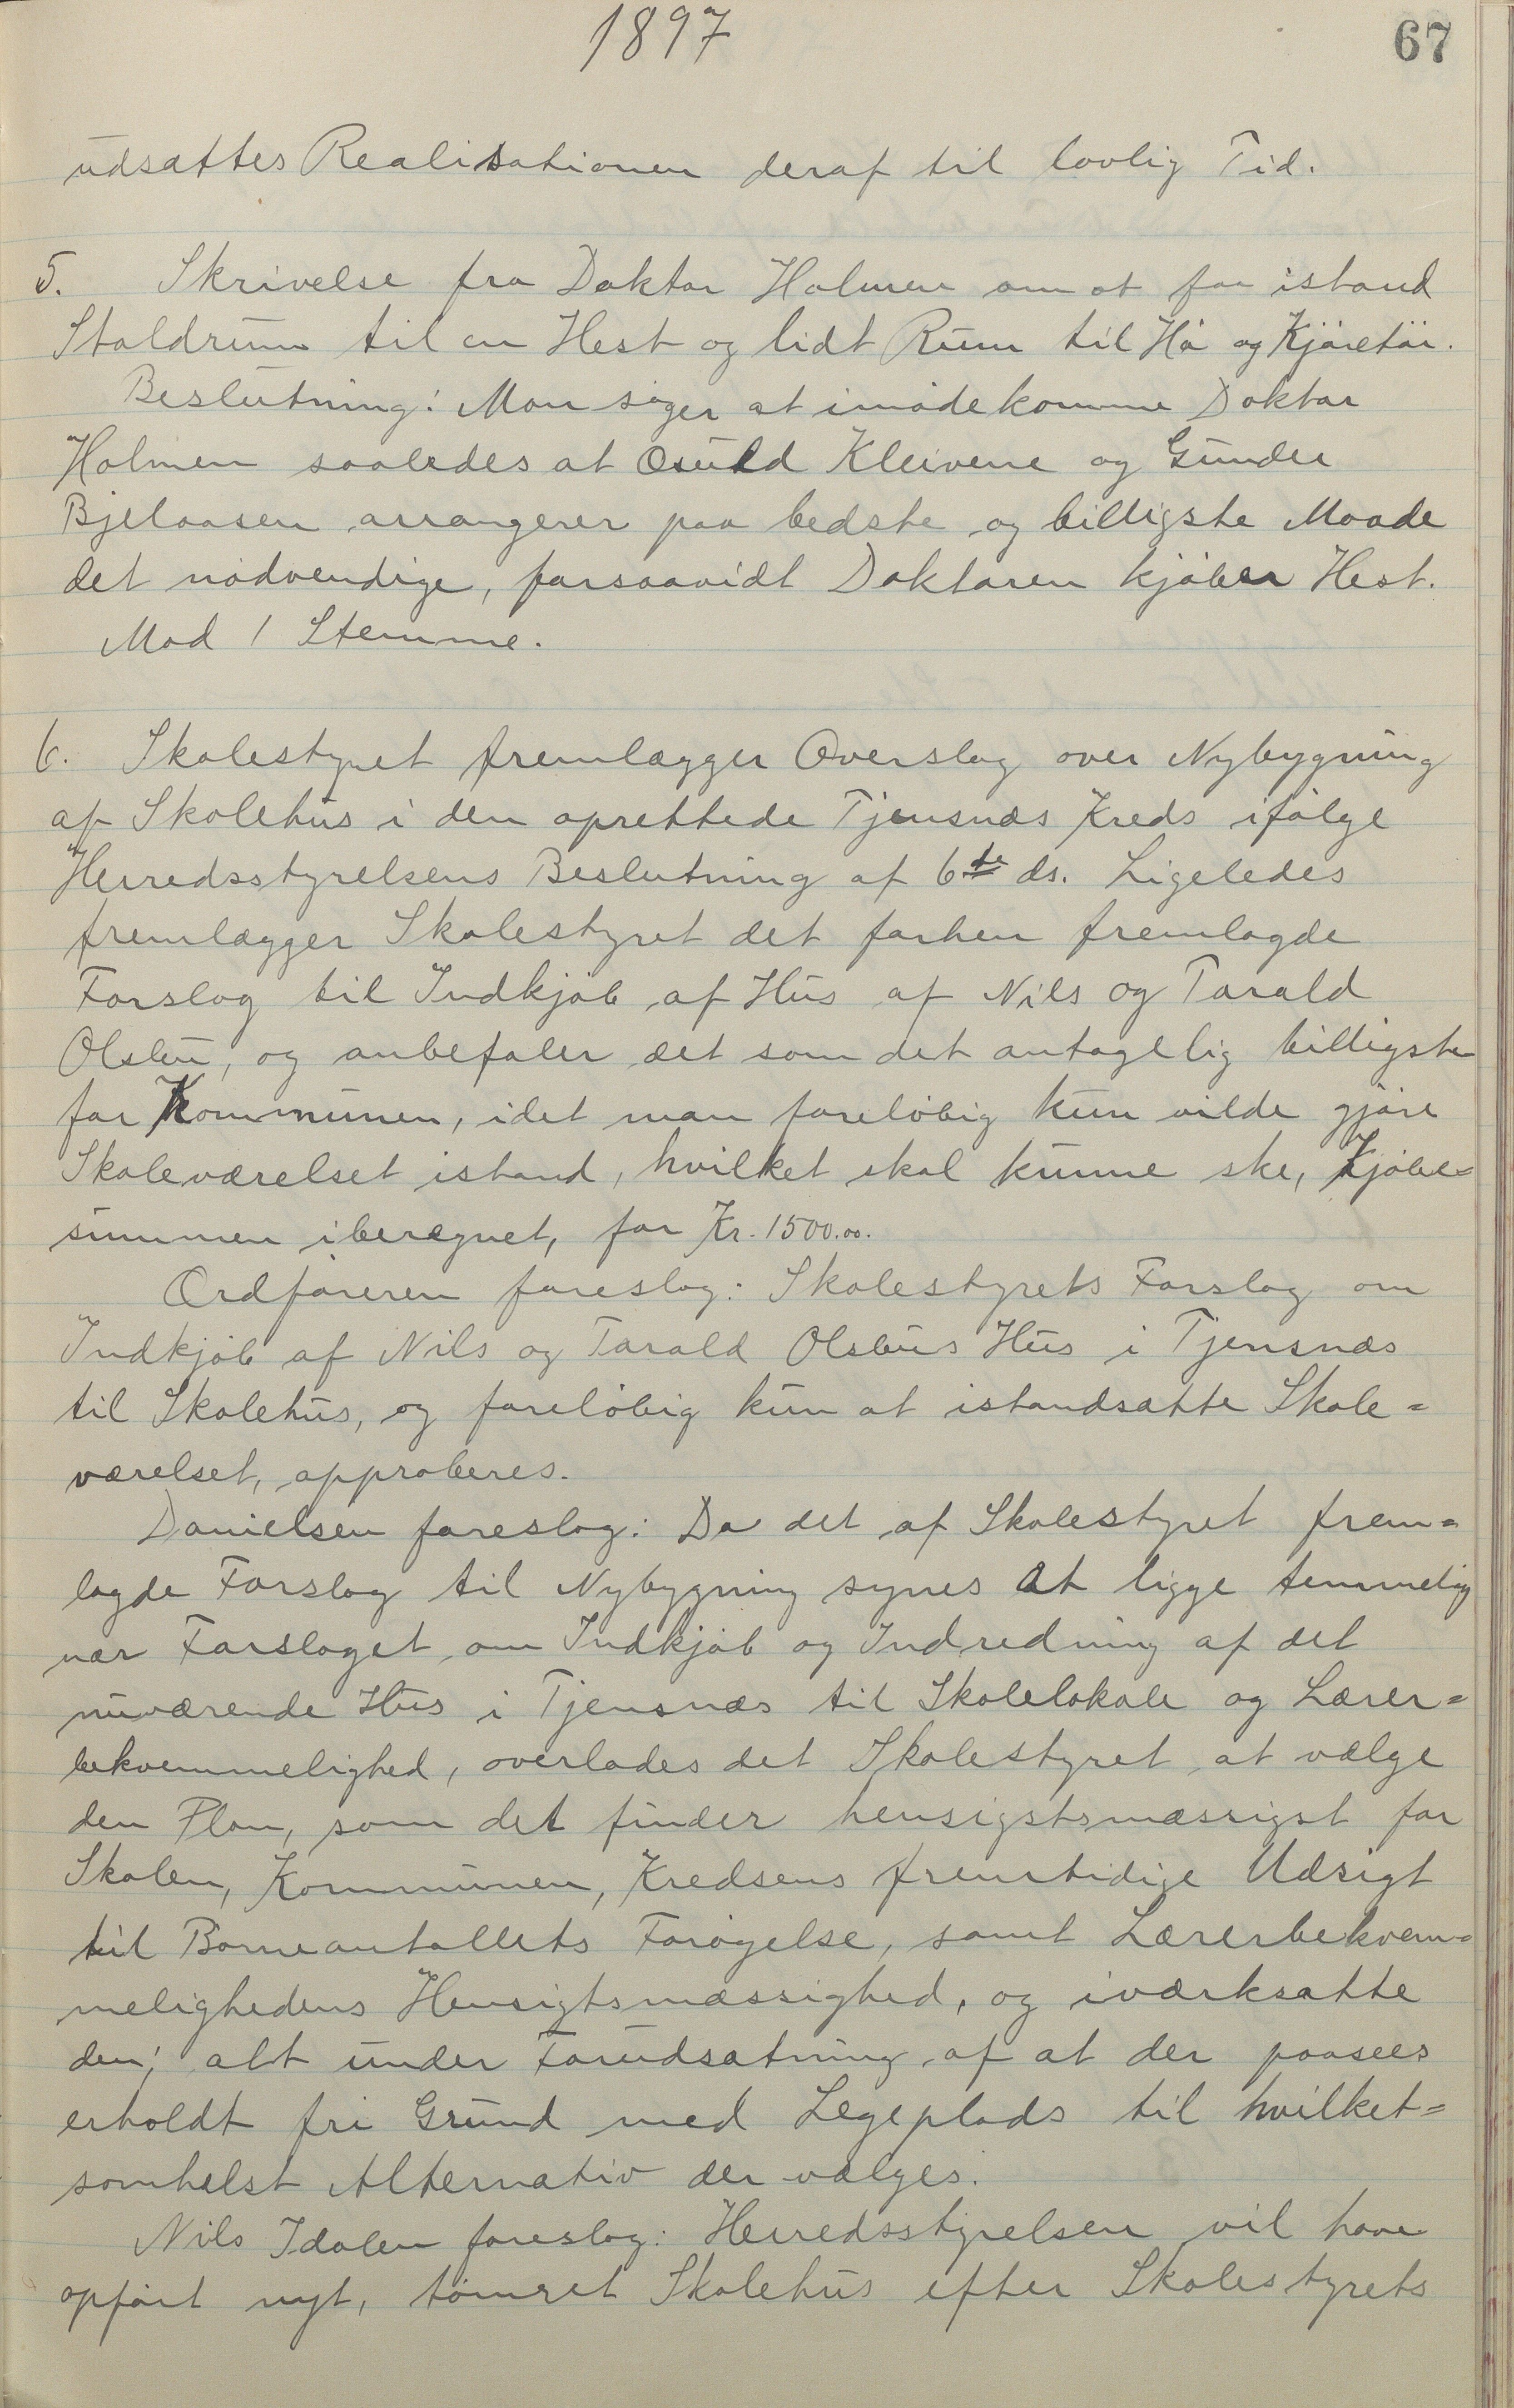 1897
67
udsattes Realisationen deraf til lovlig Tid.
5. Skrivelse fra Doktor Holmen om at faa istand
Staldrum til en Hest og lidt Rum til Hö og Kjöretöi.
Beslutning: Man söger at imödekomme Doktor
Holmen saaledes at Osuld Kleivene og Gunder
Bjelaasen arrangerer paa bedste og billigste Maade
det nödvendige, forsaavidt Doktoren kjöber Hest.
Mod 1 Stemme.
6. Skolestyret fremlægger Overslag over Nybygning
af Skolehus i den oprettede Tjensnæs Kreds ifölge
Herredsstyrelsens Beslutning af 6te ds. Ligeledes
fremlægger Skolestyret det forhen fremlagde
Forslag til Indkjöb af Hus af Nils og Tarald
Olsbu, og anbefaler det som det antagelig billigste
for Kommunen, idet man foreløbig kun vilde gjöre
Skoleværelset istand, hvilket skal kunne ske, Kjöbe=
summen iberegnet, for Kr. 1500.00.
Ordföreren foreslog: Skolestyrets Forslag om
Indkjöb af Nils og Tarald Olsbus Hus i Tjensnæs
til Skolehus, og foreløbig kun at istandsætte Skole=
værelset, approberes.
Danielsen foreslog: Da det af Skolestyret frem=
lagde Forslag til Nybygning synes at ligge temmelig
nær Forslaget om Indkjöb og Indredning af det
nuværende Hus i Tjensnæs til Skolelokale og Lærer=
bekvemmelighed, overlades det Skolestyret at vælge
den Plan, som det finder hensigstsmæssigst for
Skolen, Kommunen, Kredsens fremtidige Udsigt
til Börneantallets Forögelse, samt Lærerbekvem=
melighedens Hensigtsmæssighed, og iværksætte
den; alt under Forudsætning af at der paasees
erholdt fri Grund med Legeplads til hvilket=
somhelst Alternativ der vælges.
Nils Idalen foreslog: Herredsstyrelsen vil have
opfört nyt, tömret Skolehus efter Skolestyrets